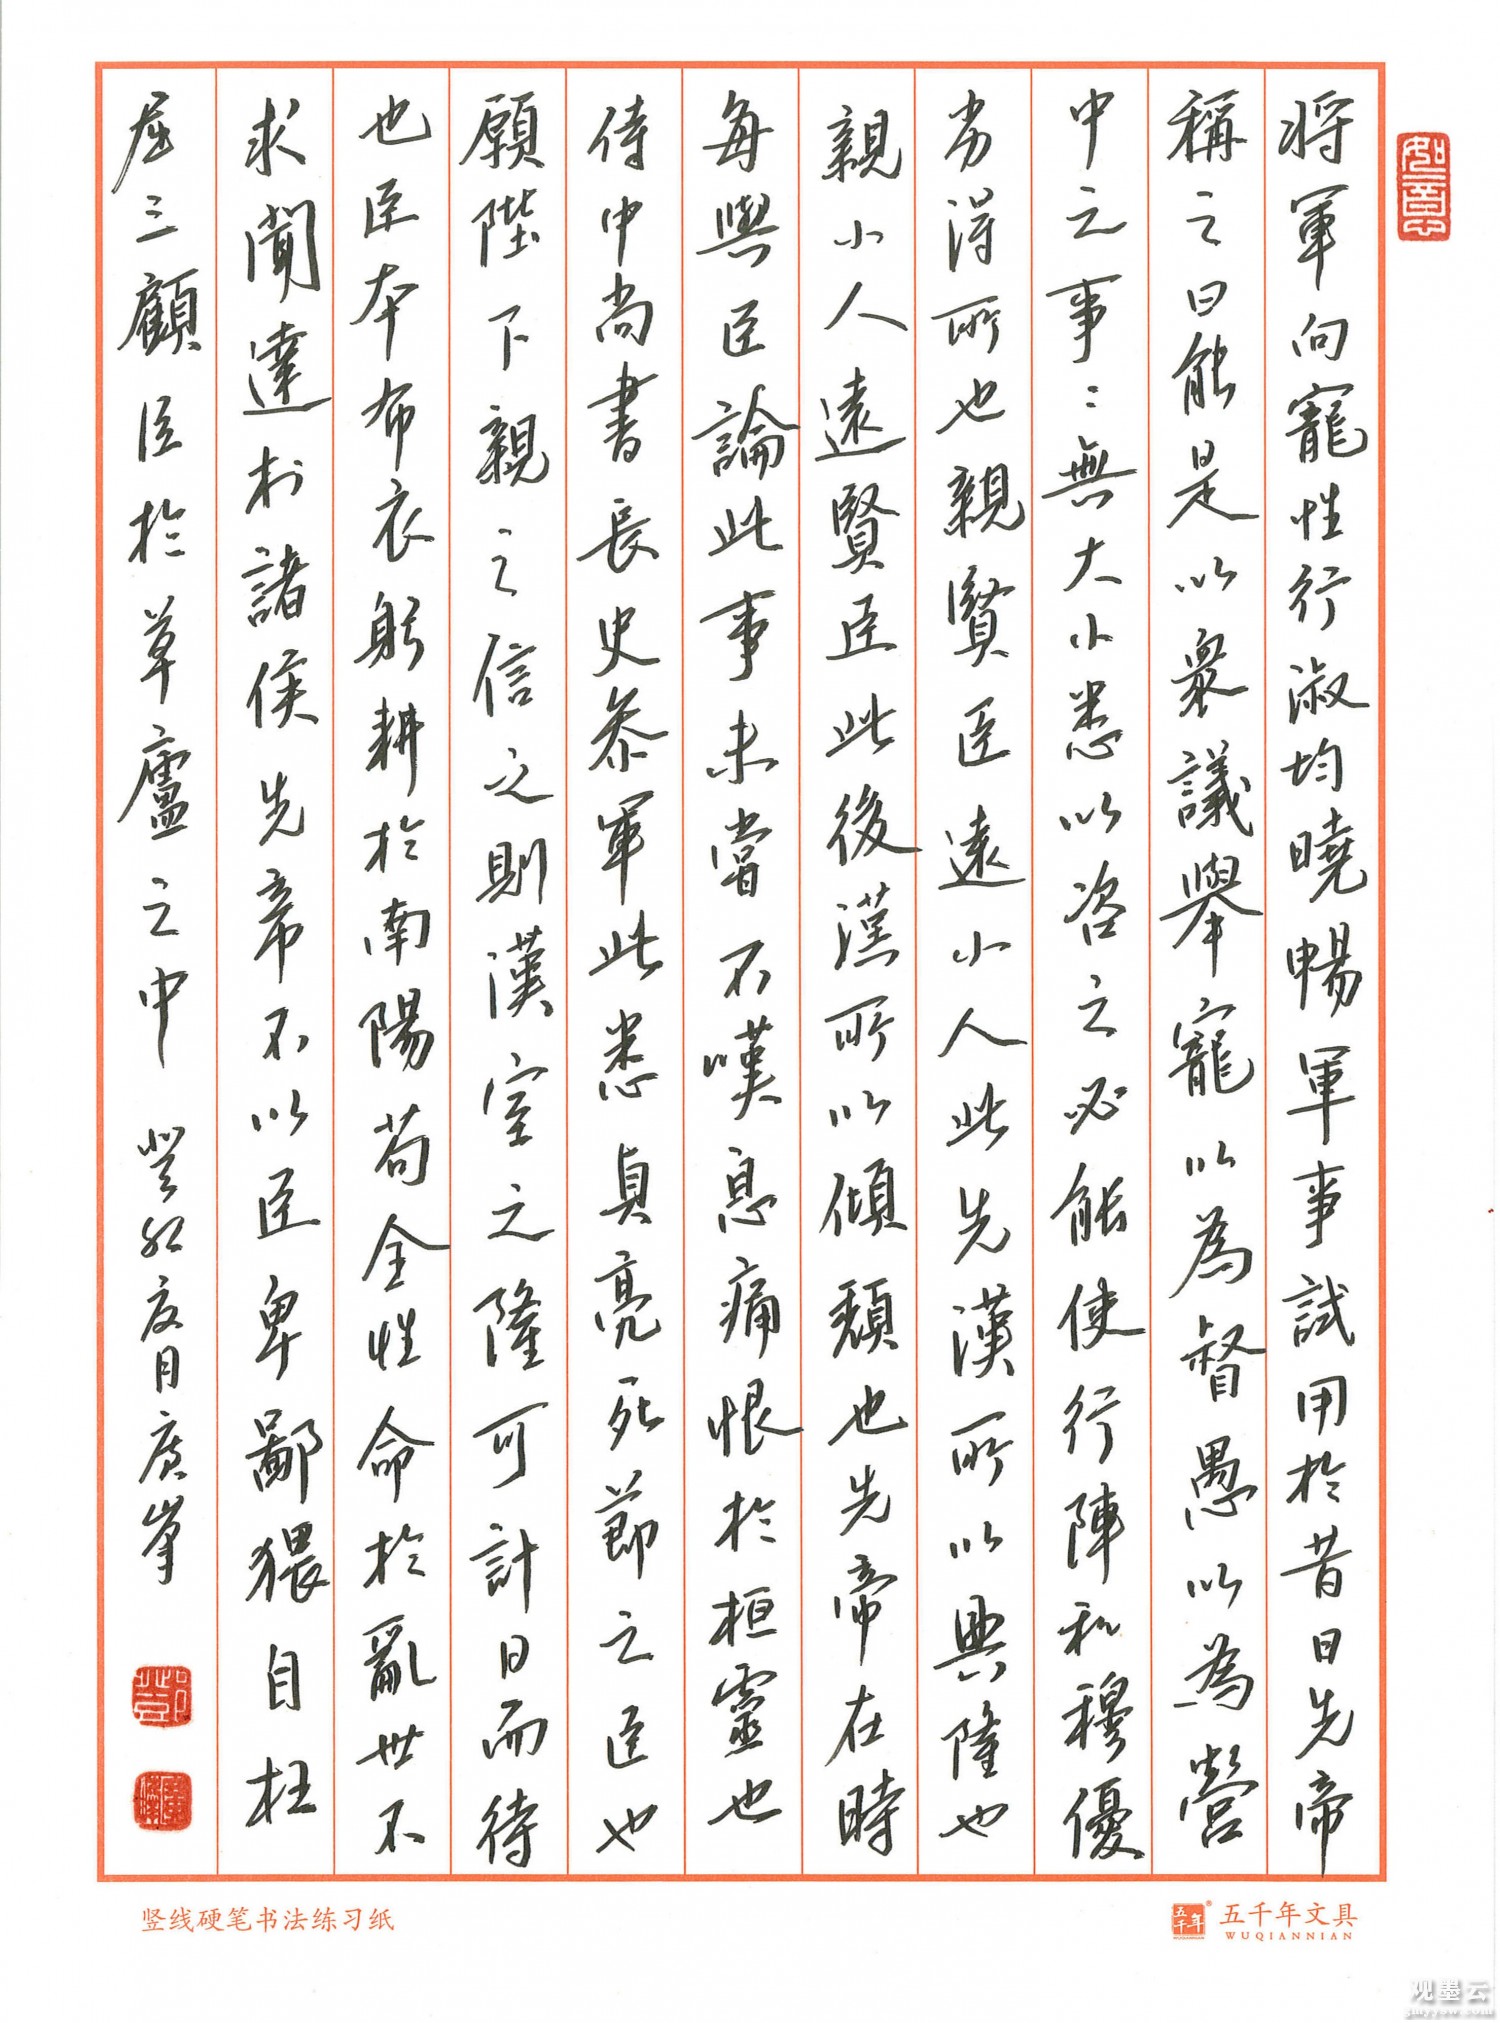 將軍向寵性行淑均曉暢軍事試用於昔日先帝
稱之曰能是以衆議舉寵以為督愚以為營
中之事〻無大小悉以咨之必能使行陣和穆優
劣得所也親賢臣遠小人此先漢所以興隆也
親小人遠賢臣此後漢所以傾頹也先帝在時
每與臣論此事未嘗不嘆息痛恨於桓靈也
侍中尚書長史參軍此悉貞亮死節之臣也
願陛下親之信之則漢室之隆可計日而待
也臣本布衣躬耕於南陽苟全性命於亂世不
求聞達於諸侯先帝不以臣卑鄙猥自枉
屈三顧臣於草廬之中 癸卯夏月 廣峯
如意
竖线硬笔书法练习纸
五千年
五千年文具
WUQIANNIAN
观墨云
gmyyow.com